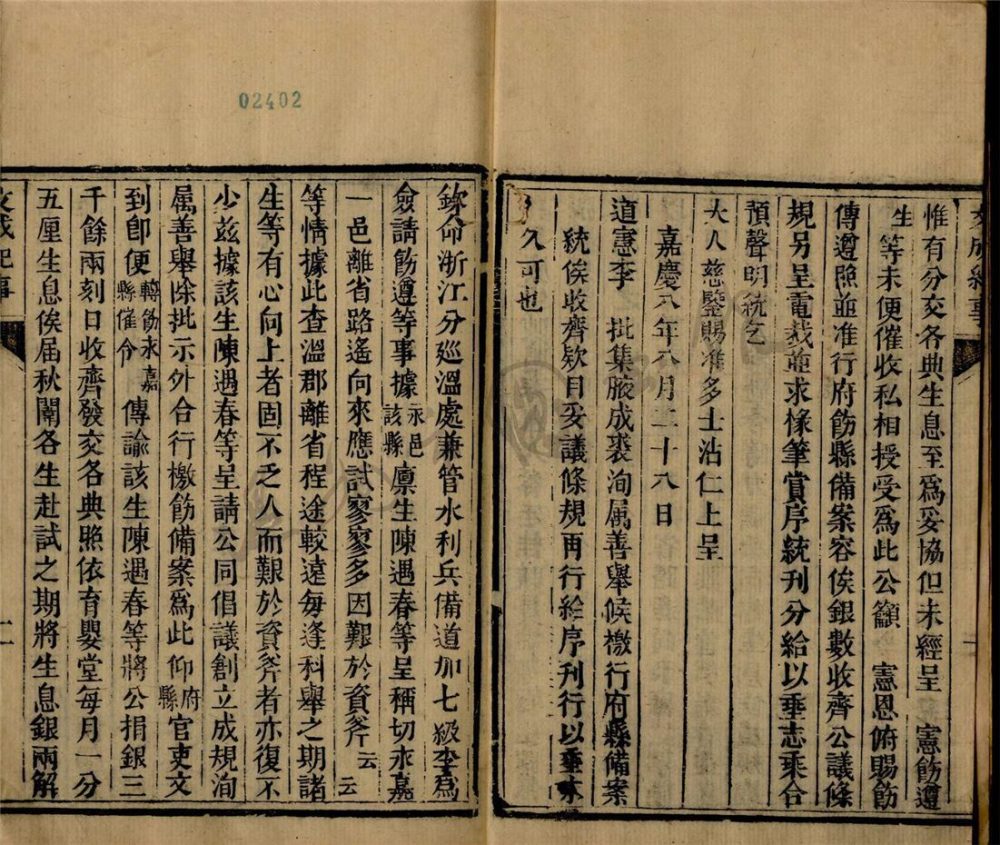 惟有分交各典生息至爲妥協但未經呈 憲飭遵
生等未便催收私相授受爲此公籲 憲恩俯賜飭
傳遵照並准行府飭縣備案容俟銀數收齊公議條
規另呈電裁並求椽筆賞序統刊分給以垂志乘合
預聲明統乞
大人慈鑒賜准多士沾仁上呈
嘉慶八年八月二十八日
道憲李 批集腋成裘洵属善舉候檄行府縣備案
統俟收齊欵目妥議條規再行給序刊行以垂永
久可也
02402
欽命浙江分巡溫處兼管水利兵備道加七級李爲
僉請飭遵等事據永邑該縣廪生陳遇春等呈稱切永嘉
一邑離省路遙向來應試寥寥多因艱於資斧云云
等情據此查溫郡離省程途較遠每逢科舉之期諸
生等有心向上者固不乏人而艱於資斧者亦復不
少兹據該生陳遇春等呈請公同倡議創立成規洵
属善舉除批示外合行檄飭備案爲此仰府縣官吏文
到卽便轉飭永嘉縣催令傳諭該生陳遇春等將公捐銀三
千餘兩刻日收齊發交各典照依育嬰堂每月一分
五厘生息俟届秋闈各生赴試之期將生息銀兩解
文成紀事 二